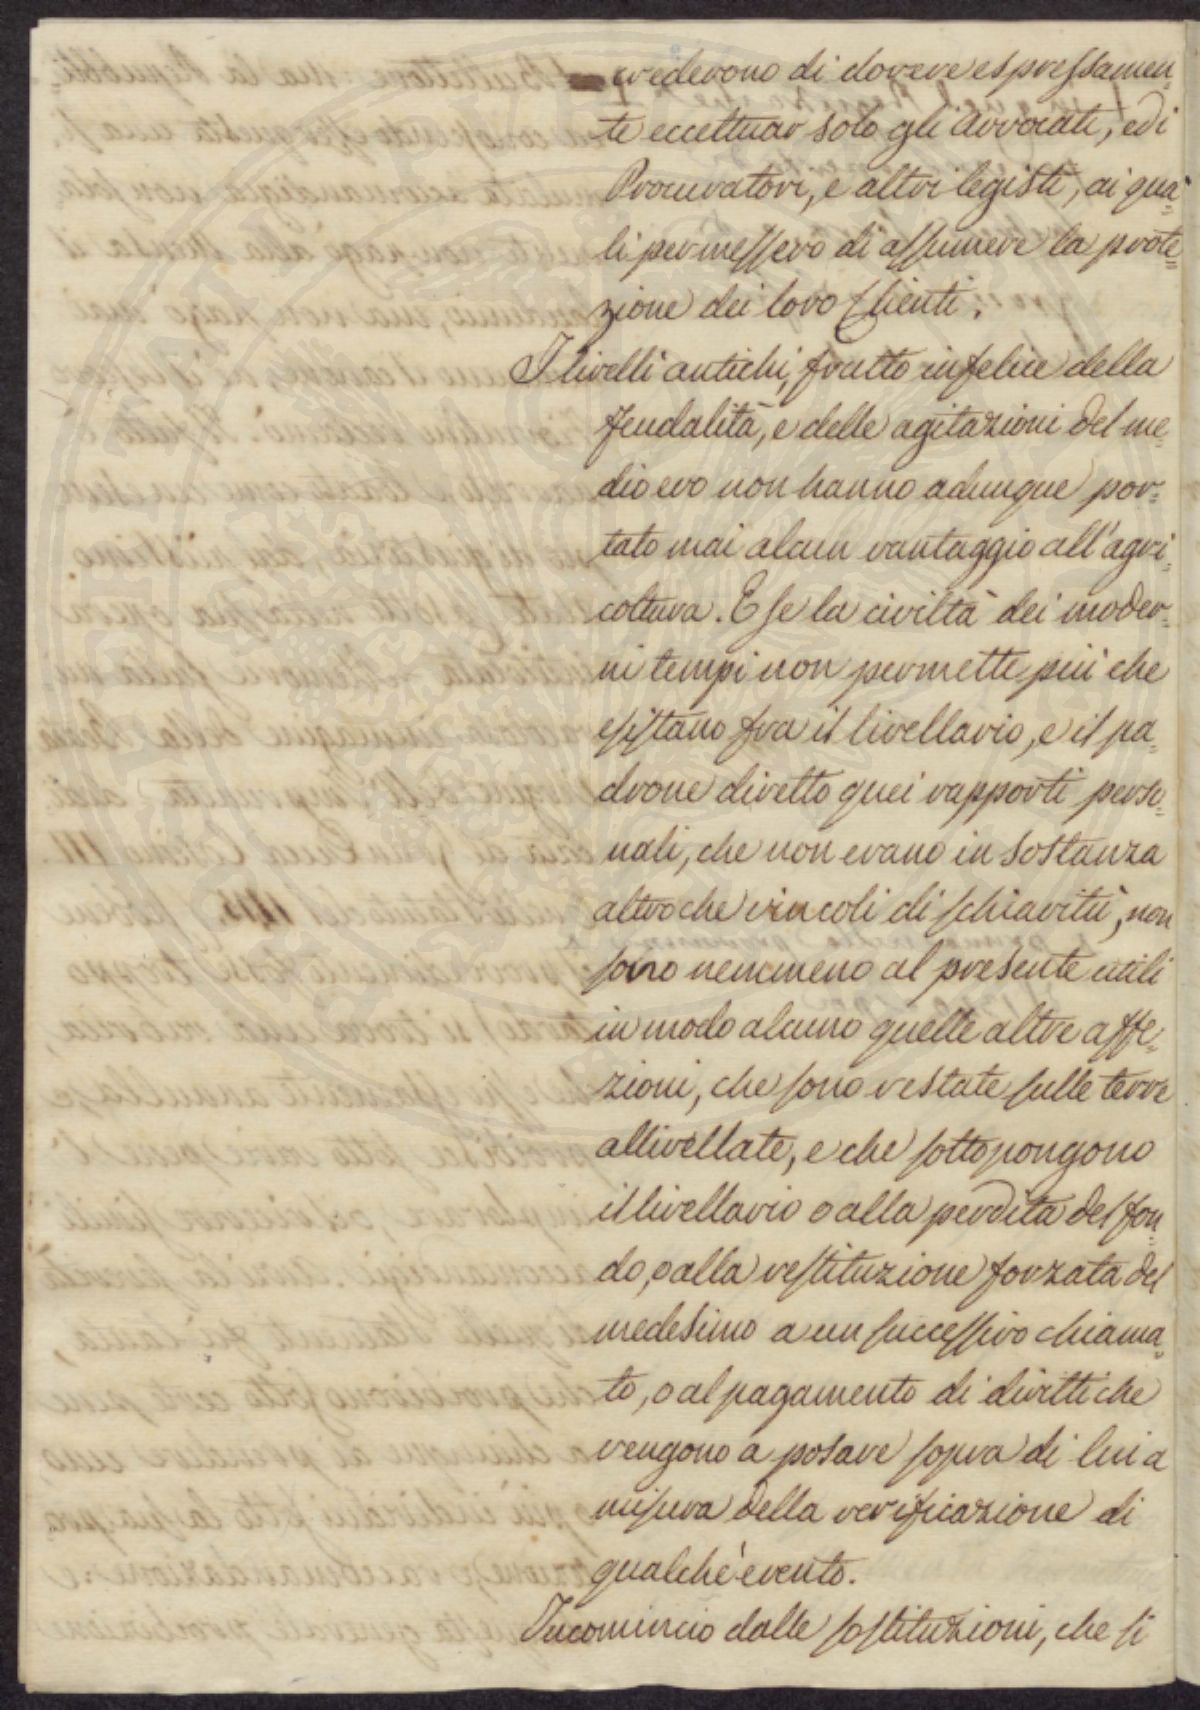 crederono di dovere espressamen=
te eccettuar solo gli Avvocati, ed i
Procuratori, e altri legisti, ai qua=
li permessero di assumere la prote=
zione dei loro Clienti.
I livelli antichi, frutto infelice della
feudalità, e delle agitazioni del me=
dio evo non hanno adunque por=
tato mai alcun vantaggio all'agri=
coltura. E se la civiltà dei moder=
ni tempi non permette più che
esistano fra il livellario, e il pa=
drone diretto quei rapporti perso=
nali, che non erano in sostanza
altro che vincoli di schiavitù, non
sono nemmeno al presente utili
in modo alcuno quelle altre affe=
zioni, che sono restate sulle terre
allivellate, e che sottopongono
il livellario o alla perdita del fon=
do, o alla restituzione forzata del
medesimo a un successivo chiama=
to, o al pagamento di diritti che
vengono a posare sopra di lui a
misura della verificazione di
qualche evento.
Incomincio dalle sostituzioni, che si